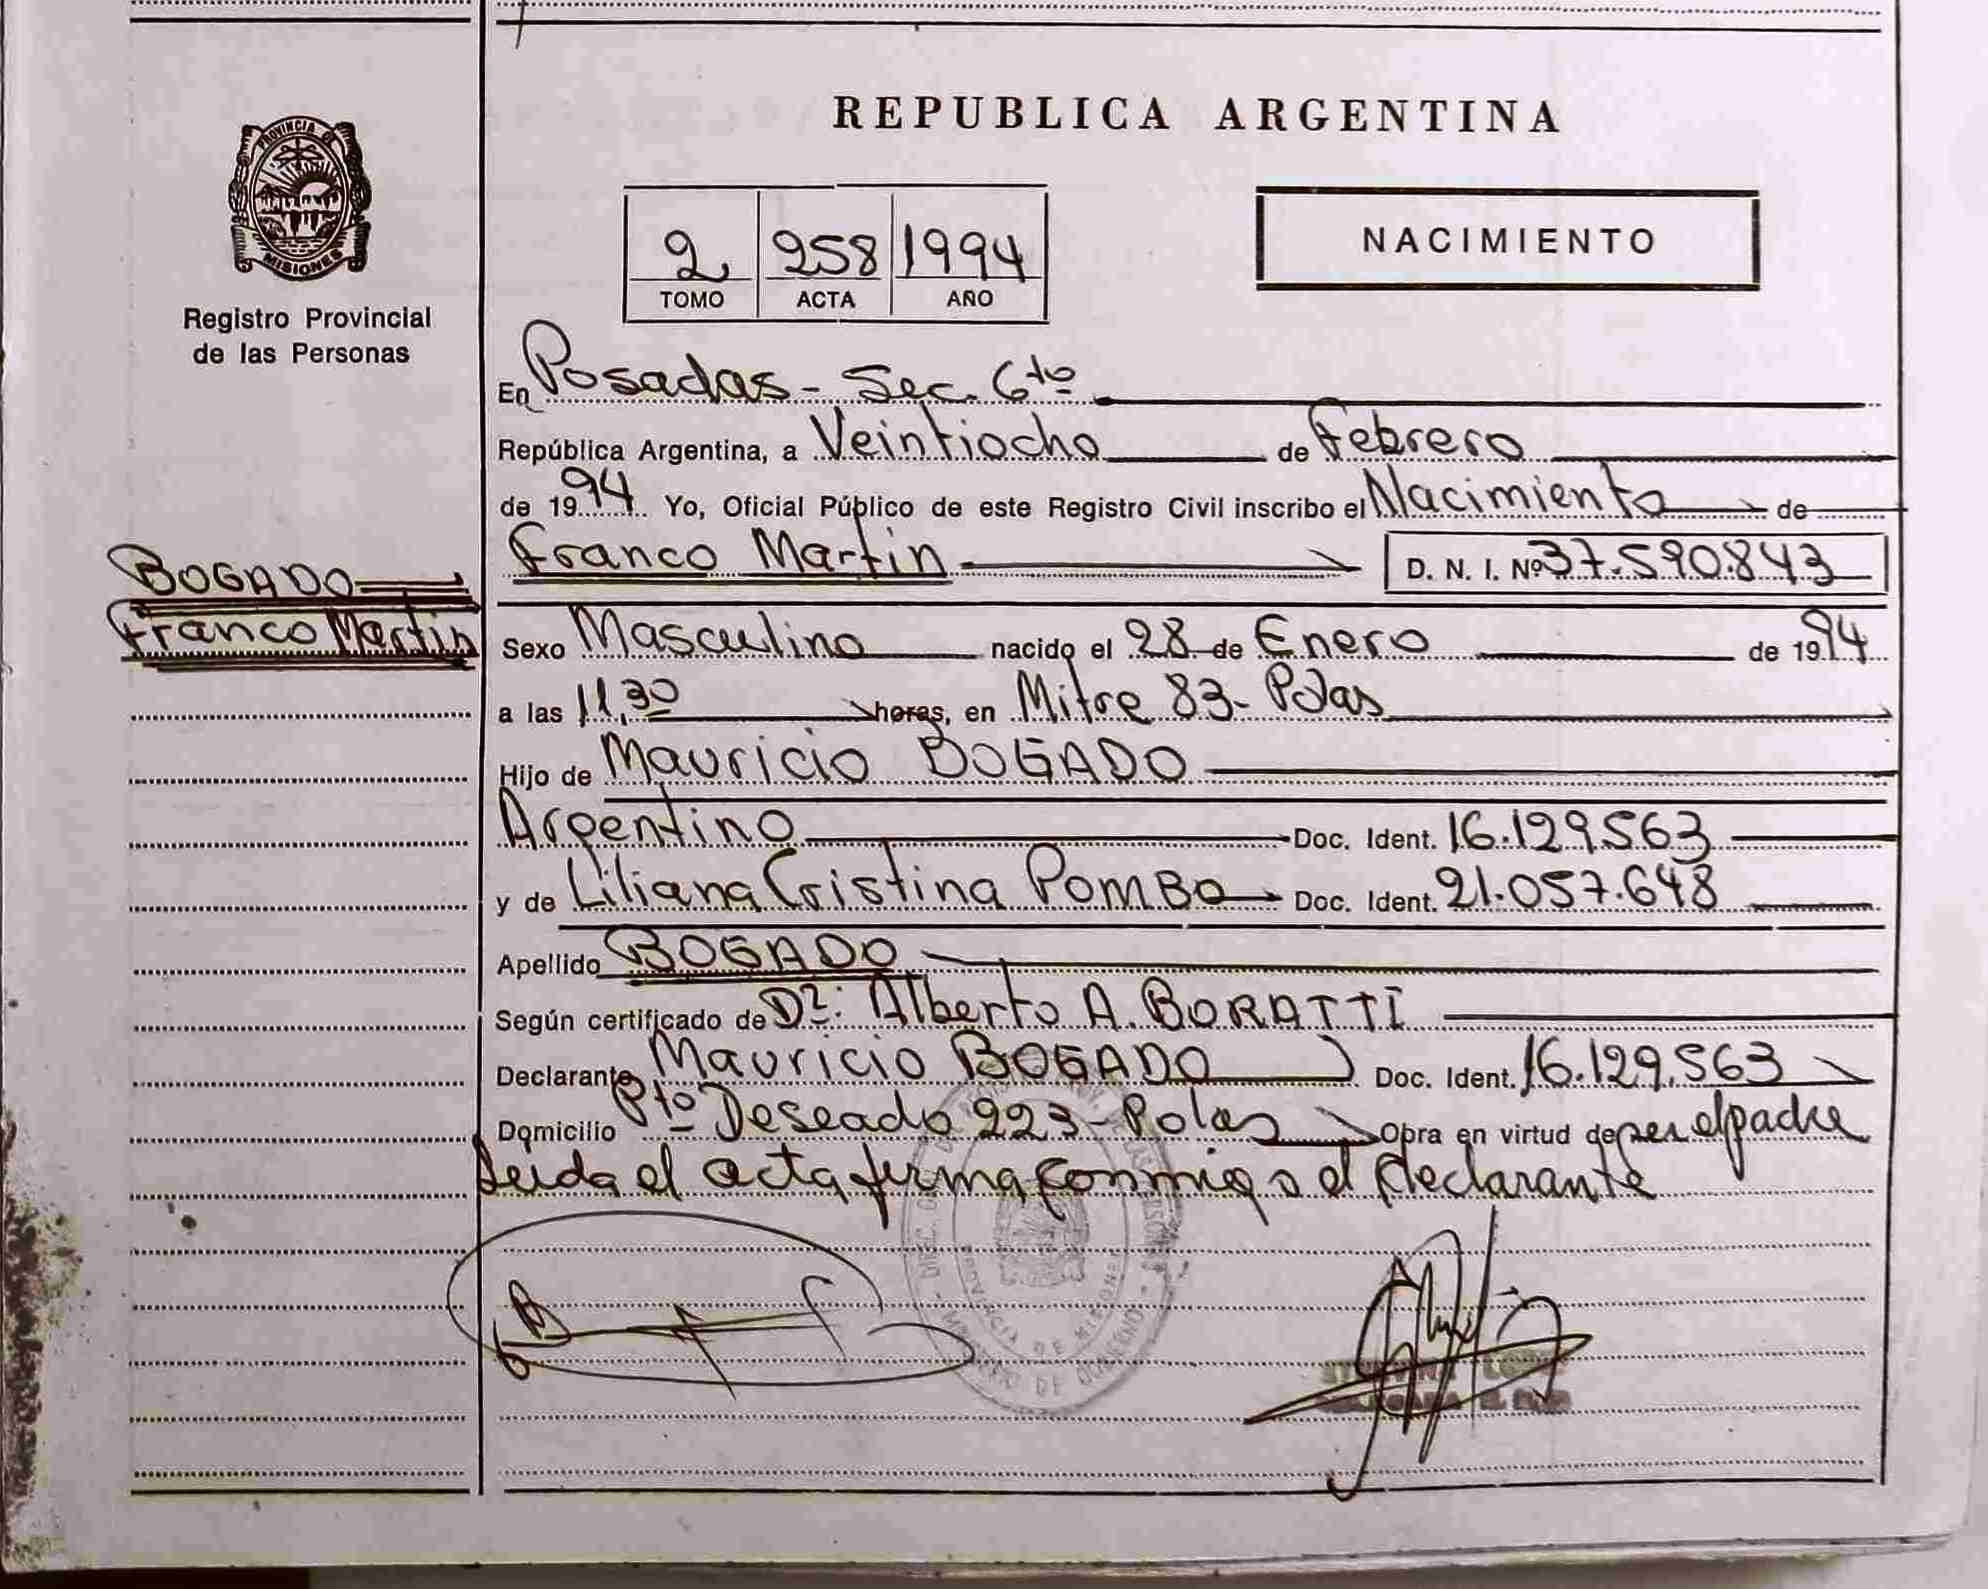 REPUBLICA ARGENTINA
PROVINCIA DE
MISIONES
Registro Provincial
de las Personas
2 258 1994
TOMO ACTA AÑO
NACIMIENTO
En Posadas - Sec. 6to
República Argentina, a Veintiocho de Febrero
de 1994 Yo, Oficial Público de este Registro Civil inscribo el Nacimiento de
Franco Martin D. N. I. Nº 37.590.843
BOGADO
Franco Martin
Sexo Masculino nacido el 28 de Enero de 1994
a las 11,30 horas, en Mitre 83 - Pdas
Hijo de Mauricio BOGADO
Argentino Doc. Ident. 16.129.563
y de Liliana Cristina POMBO Doc. Ident. 21.057.648
Apellido BOGADO
Según certificado de Dr: Alberto A. BORATTI
Declarante Mauricio BOGADO Doc. Ident. 16.129.563
Domicilio Pto Deseado 223 - Pdas Obra en virtud de ser el padre
Leida el acta firma conmigo el declarante
PROVINCIA DE MISIONES